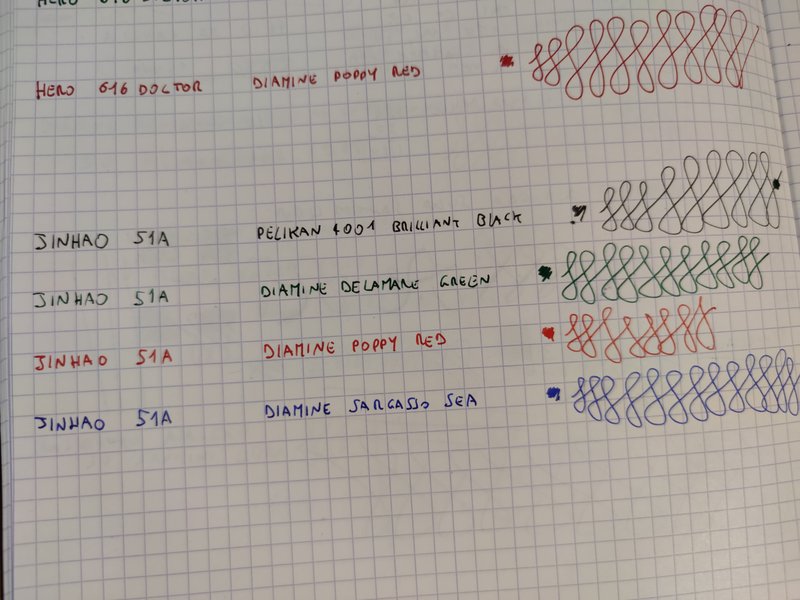 HERO 616 DOCTOR DIAMINE POPPY RED
JINHAO 51A PELIKAN 4001 BRILLIANT BLACK
JINHAO 51A DIAMINE DELAMARE GREEN
JINHAO 51A DIAMINE POPPY RED
JINHAO 51A DIAMINE SARGASSO SEA